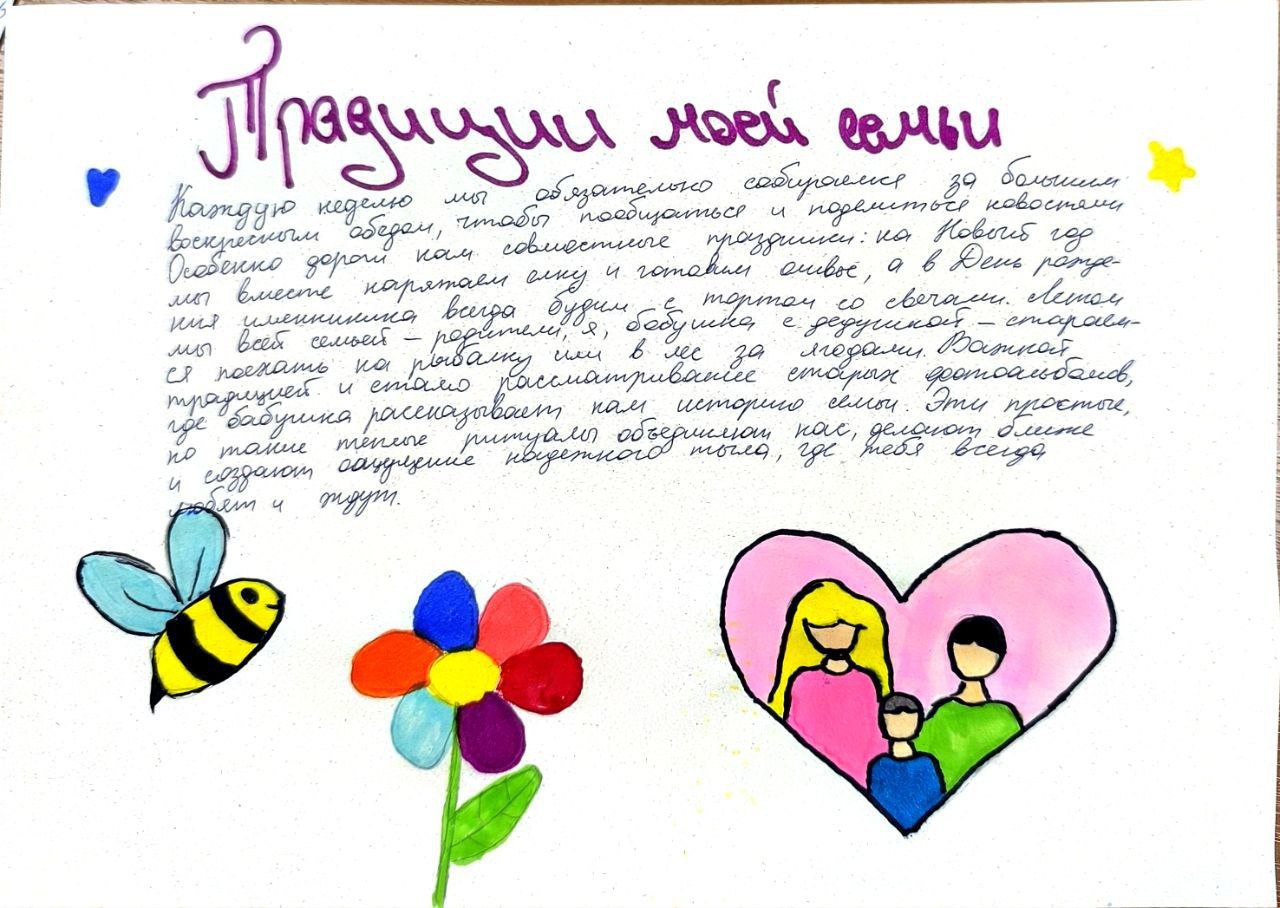 Традиции моей семьи
Каждую неделю мы обязательно собираемся за большим
воскресным обедом, чтобы пообщаться и поделиться новостями
Особенно дороги нам совместные праздники: на Новый год
мы вместе наряжаем елку и готовим оливье, а в День рожде-
ния именинника всегда будим с тортом со свечами. Летом
мы всей семьей – родители, я, бабушка с дедушкой – стараем-
ся поехать на рыбалку или в лес за ягодами. Важной
традицией и стало рассматривание старых фотоальбомов,
где бабушка рассказывает нам историю семьи. Эти простые,
но такие теплые ритуалы объединяют нас, делают ближе
и создают ощущение надежного тыла, где тебя всегда
любят и ждут.